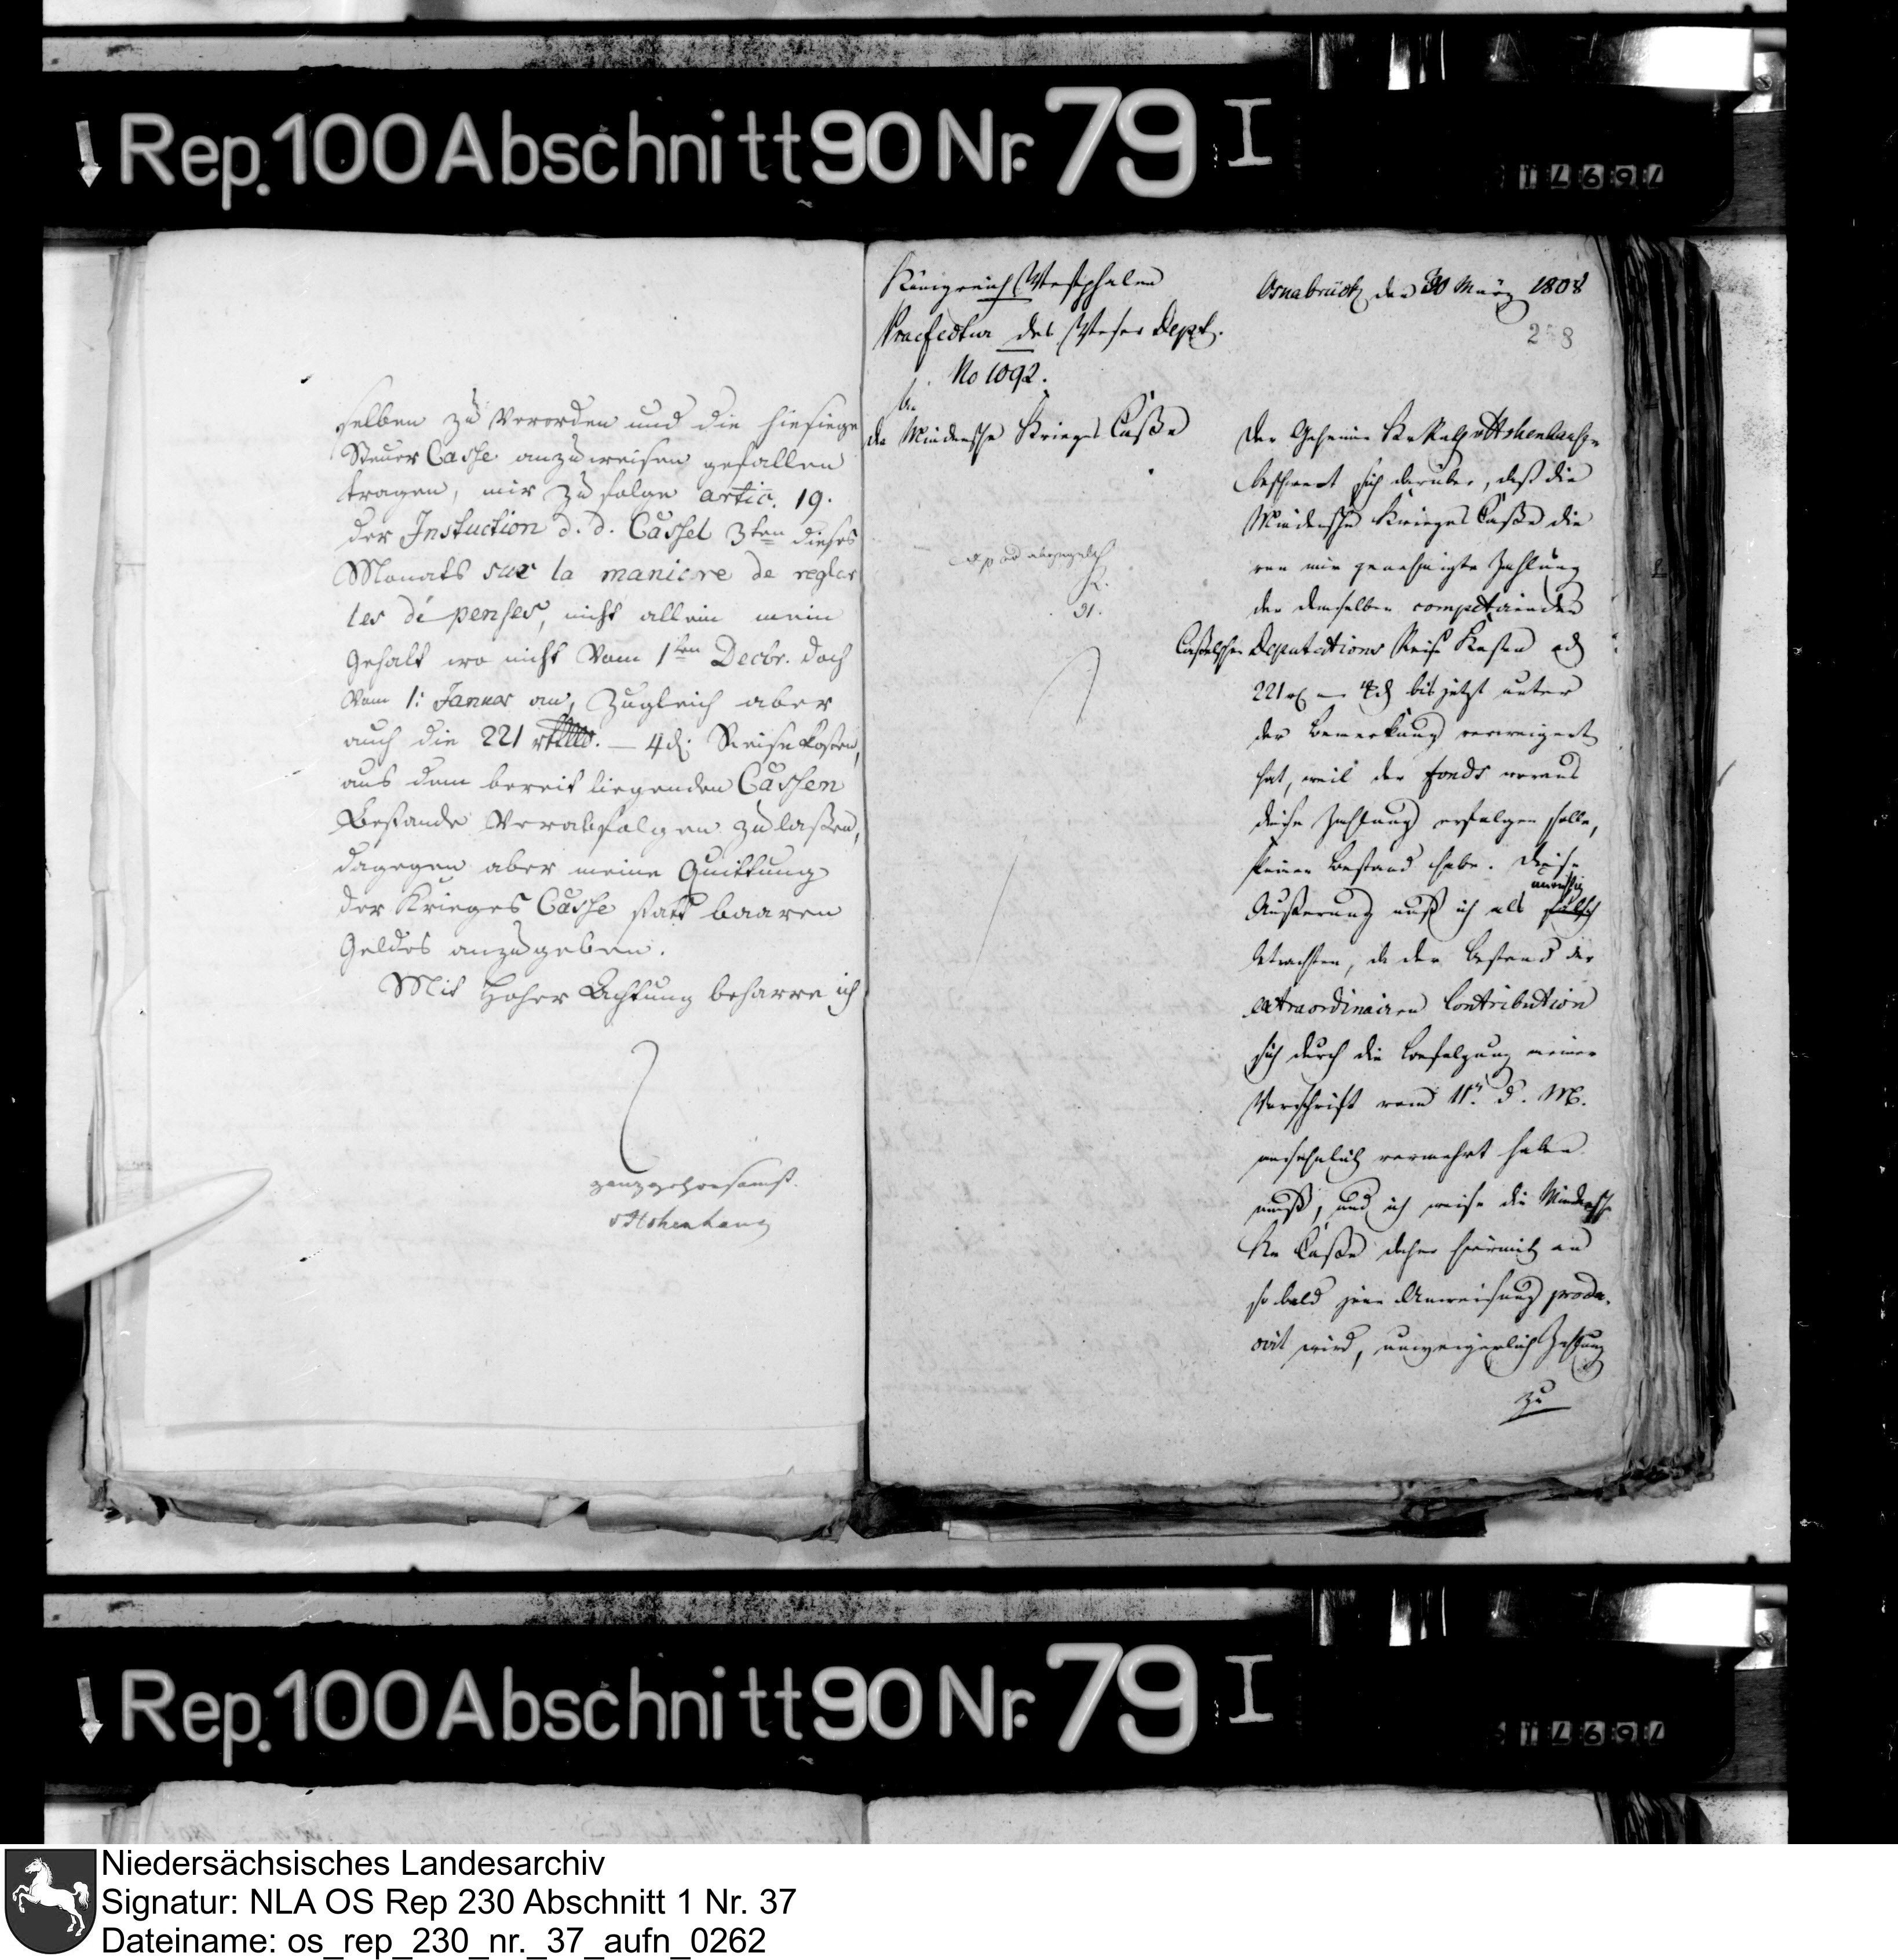 Rep. 100 Abschnitt 90 Nr. 79 I
selben zu Verorden und die hiesiege
Steuer Casse anzuweisen gefallen
tragen, mir zu folge artic. 19.
der Instuction d. d. Cassel 3ten dieses
Monats sur la maniere de regler
les dépenses, nicht allein mein
Gehalt wo nicht Vom 1ten Decbr. doch
Vom 1: Januar an, zugleich aber
auch die 221 – 4 d: Reisekosten,
aus dem bereit liegenden Cassen
Bestande Verabfolgen zu laßen,
dagegen aber meine Quittung
der Krieges Casse statt baaren
Geldes anzugeben.
Mit Hoher Achtung beharre ich
ganzgehorsamst.
vHohenhaus
Königreich Westphalen
Praefectur des Weser Dept.
No 1092.
An
die Mindensche Krieges Caße
Osnabrück den 30 März 1808
Der Geheime vHohenhausen
beschwert sich darüber, daß die
Mindensche Krieges Caße die
von mir genehmigte Zahlung
der demselben competirenden
Casselschen Deputations Reise Kosten ad
221 – 4 d bis jetzt unter
der Bemerkung verweigert
hat, weil der Fonds woraus
diese Zahlung erfolgen solle,
keinen Bestand habe. Diese
unrichtig
Äußerung muß ich als falsch
betrachten, da der Bestand der
extraordinairen Contribution
sich durch die Befolgung meiner
Vorschrift vom 11t. d. M.
ansehnlich vermehrt haben
muß, und ich weise die Mindensche
Kr Caße daher hiermit an
so bald jene Anweisung produ-
cirt wird, unweigerlich Zahlung
zu
Rep. 100 Abschnitt 90 Nr. 79 I
Niedersächsisches Landesarchiv
Signatur: NLA OS Rep 230 Abschnitt 1 Nr. 37
Dateiname: os_rep_230_nr._37_aufn_0262